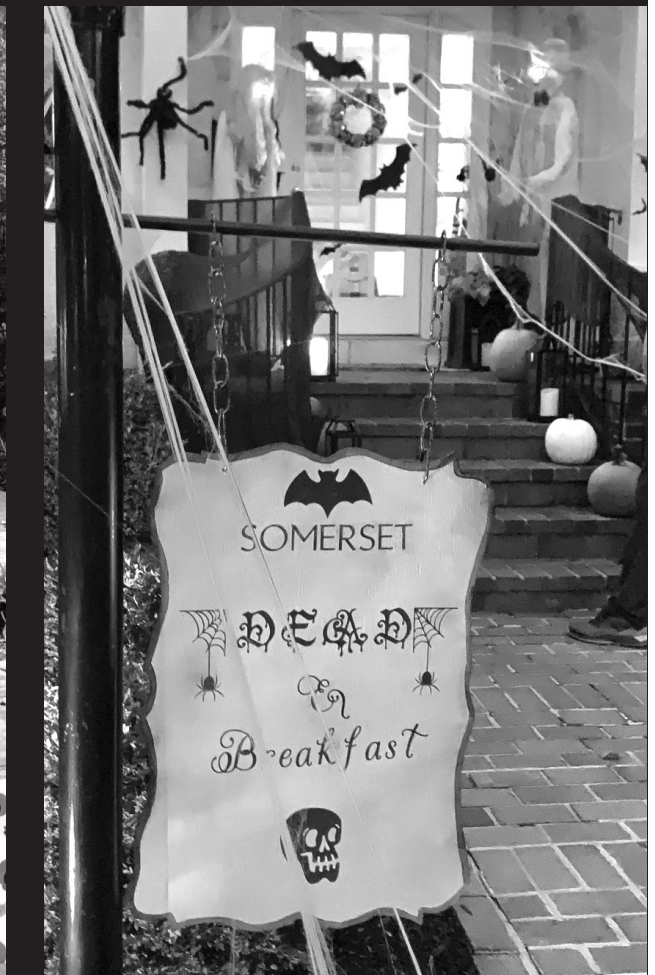 SOMERSET
DEAD
En
Breakfast